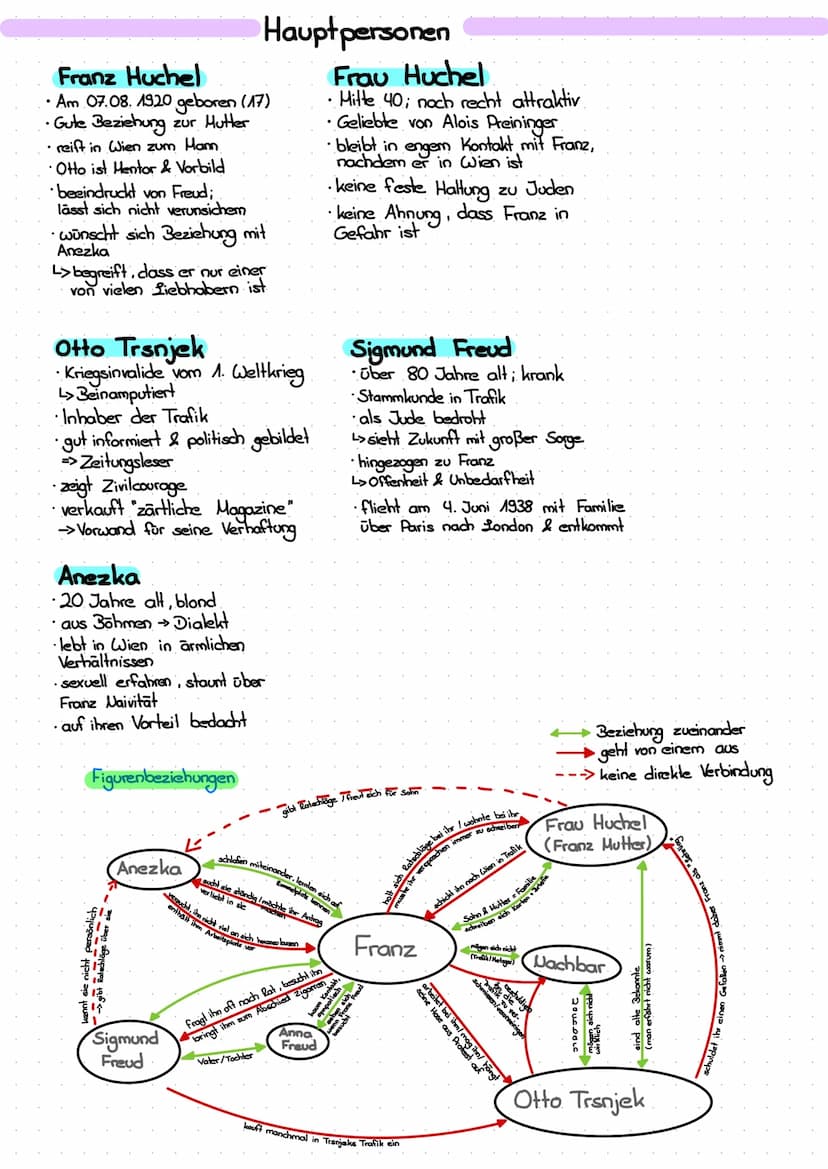 Hauptpersonen
Franz Huchel
· Am 07.08. 1920 geboren (17)
· Gute Beziehung zur Mutter
· reift in Wien zum Mann
· Otto ist Mentor & Vorbild
· beeindruckt von Freud;
lässt sich nicht verunsichern
· wünscht sich Beziehung mit
Anezka
↳ begreift, dass er nur einer
von vielen Liebhabern ist
Frau Huchel
· Mitte 40; noch recht attraktiv
· Geliebte von Alois Preininger
· bleibt in engem Kontakt mit Franz,
nachdem er in Wien ist
· keine feste Haltung zu Juden
· keine Ahnung, dass Franz in
Gefahr ist
Otto Trsnjek
· Kriegsinvalide vom 1. Weltkrieg
↳ Beinamputiert
· Inhaber der Trafik
· gut informiert & politisch gebildet
=> Zeitungsleser
· zeigt Zivilcourage
· verkauft "zärtliche Magazine"
→ Vorwand für seine Verhaftung
Sigmund Freud
· über 80 Jahre alt; krank
· Stammkunde in Trafik
· als Jude bedroht
↳ sieht Zukunft mit großer Sorge
· hingezogen zu Franz
↳ Offenheit & Unbedarfheit
· flieht am 4. Juni 1938 mit Familie
über Paris nach London & entkommt
Anezka
· 20 Jahre alt, blond
· aus Böhmen → Dialekt
· lebt in Wien in ärmlichen
Verhältnissen
· sexuell erfahren, staunt über
Franz Naivität
· auf ihren Vorteil bedacht
Beziehung zueinander
geht von einem aus
keine direkte Verbindung
Figurenbeziehungen
gibt Ratschläge / freut sich für Sohn
Frau Huchel
(Franz Mutter)
holt sich Ratschläge bei ihr / wohnte bei ihr
musste ihr versprechen immer zu schreiben
schickt ihn nach Wien in Trafik
Sohn & Mutter = Familie
schreiben sich Karten + Briefe
Anezka
schlafen miteinander, lernten sich auf
kennen
sucht sie ständig / möchte ihr Antrag
machen
verliebt in sie
versucht, ihn nicht viel an sich heranzulassen
enthält ihm Arbeitsplatz vor
Franz
mögen sich nicht
(Trafik/Metzger)
Nachbar
kennt sie nicht persönlich
→ gibt Ratschläge über sie
fragt ihn oft nach Rat, besucht ihn
bringt ihm zum Abschied Zigarren
Sigmund
Freud
Anna
Freud
Vater/Tochter
arbeitet bei ihm / mag ihn / hängt
seine Hose aus Protest auf
mögen sich nicht
wirklich
sind alte Bekannte
(man erfährt nicht warum)
schuldet ihr einen Gefallen → nimmt daher Franz als
Otto Trsnjek
kauft manchmal in Trsnjeks Trafik ein